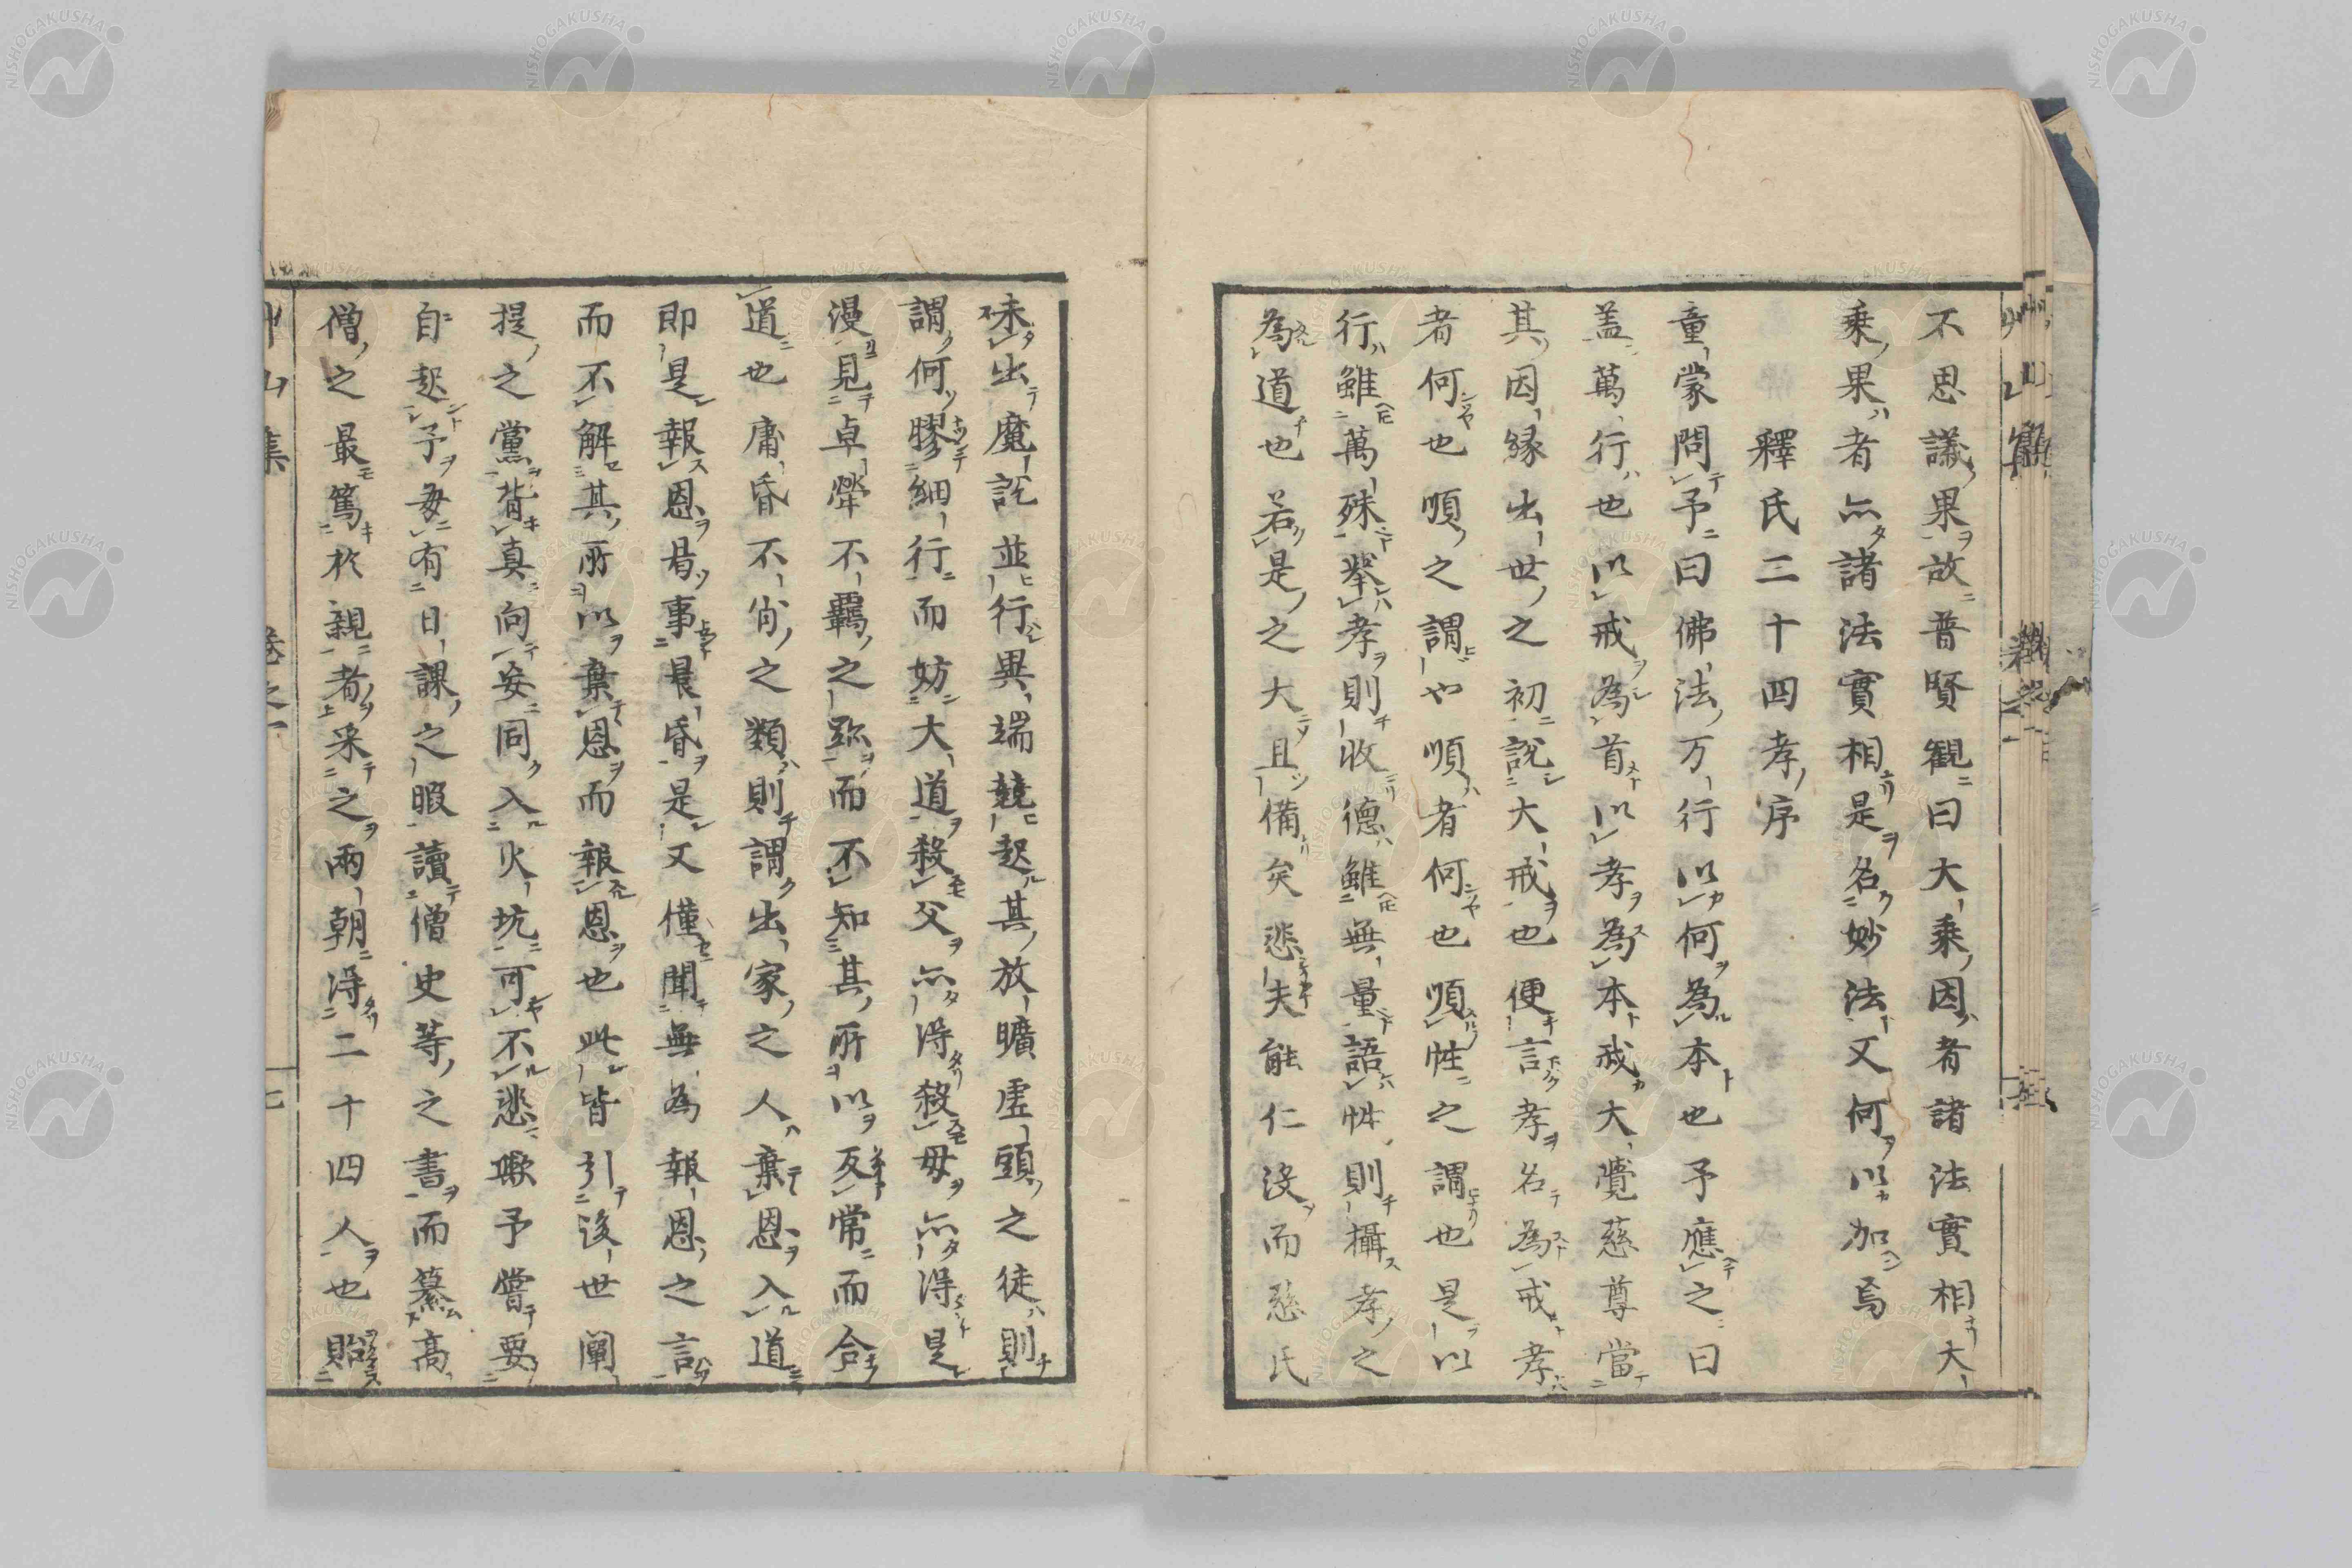 不思議果故普賢観曰大乘因者諸法實相大
乘果者亦諸法實相是名妙法又何以加焉
釋氏二十四孝序
童蒙問予曰佛法万行以何為本也予應之曰
蓋萬行也以戒為首以孝為本戒大覺慈尊當
其因縁出世之初説大戒也便言孝名為戒孝
者何也順之謂也順者何也順性之謂也是以
行雖萬殊挙孝則收德雖無量語性則攝孝之
為道也若是之大且備矣悲夫能仁没而慈氏
未出魔説並行異端競起其放曠虚頭之徒則
謂何膠細行而妨大道殺父亦得殺母亦得是
漫見卓犖不羈之跡而不知其所以反常而合
道也庸昏不肖之類則謂出家之人棄恩入道
即是報恩曷事晨昏是又僅聞無為報恩之言
而不解其所以棄恩而報恩也此皆引後世闡
提之黨背真向妄同入火坑可不悲歟予嘗要
自起予毎有日課之暇讀僧史等之書而纂高
僧之最篤於親者采之兩朝得二十四人也貽
艸山集
卷之
七